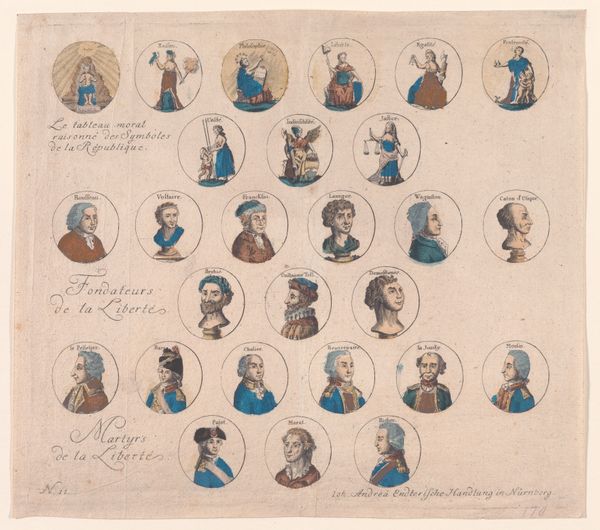 Raison.
Philosophie.
Liberté.
Egalité.
Fraternité.
Le tableau moral
raisonné des Symboles
de la République.
Unité.
Indivisibilité.
Justice.
Rousseau.
Voltaire.
Francklin.
Wagiston.
Caton d'Utique.
Fondateurs
de la Liberté
Brutus.
Guillaume Tell.
Demosthenes.
le Pelletier.
Barra.
Chalier.
Beaurepaire.
Moulin.
Martyrs
de la Liberté
Marat.
N. 11
Ioh. Andreä Endterische Handlung in Nürnberg.